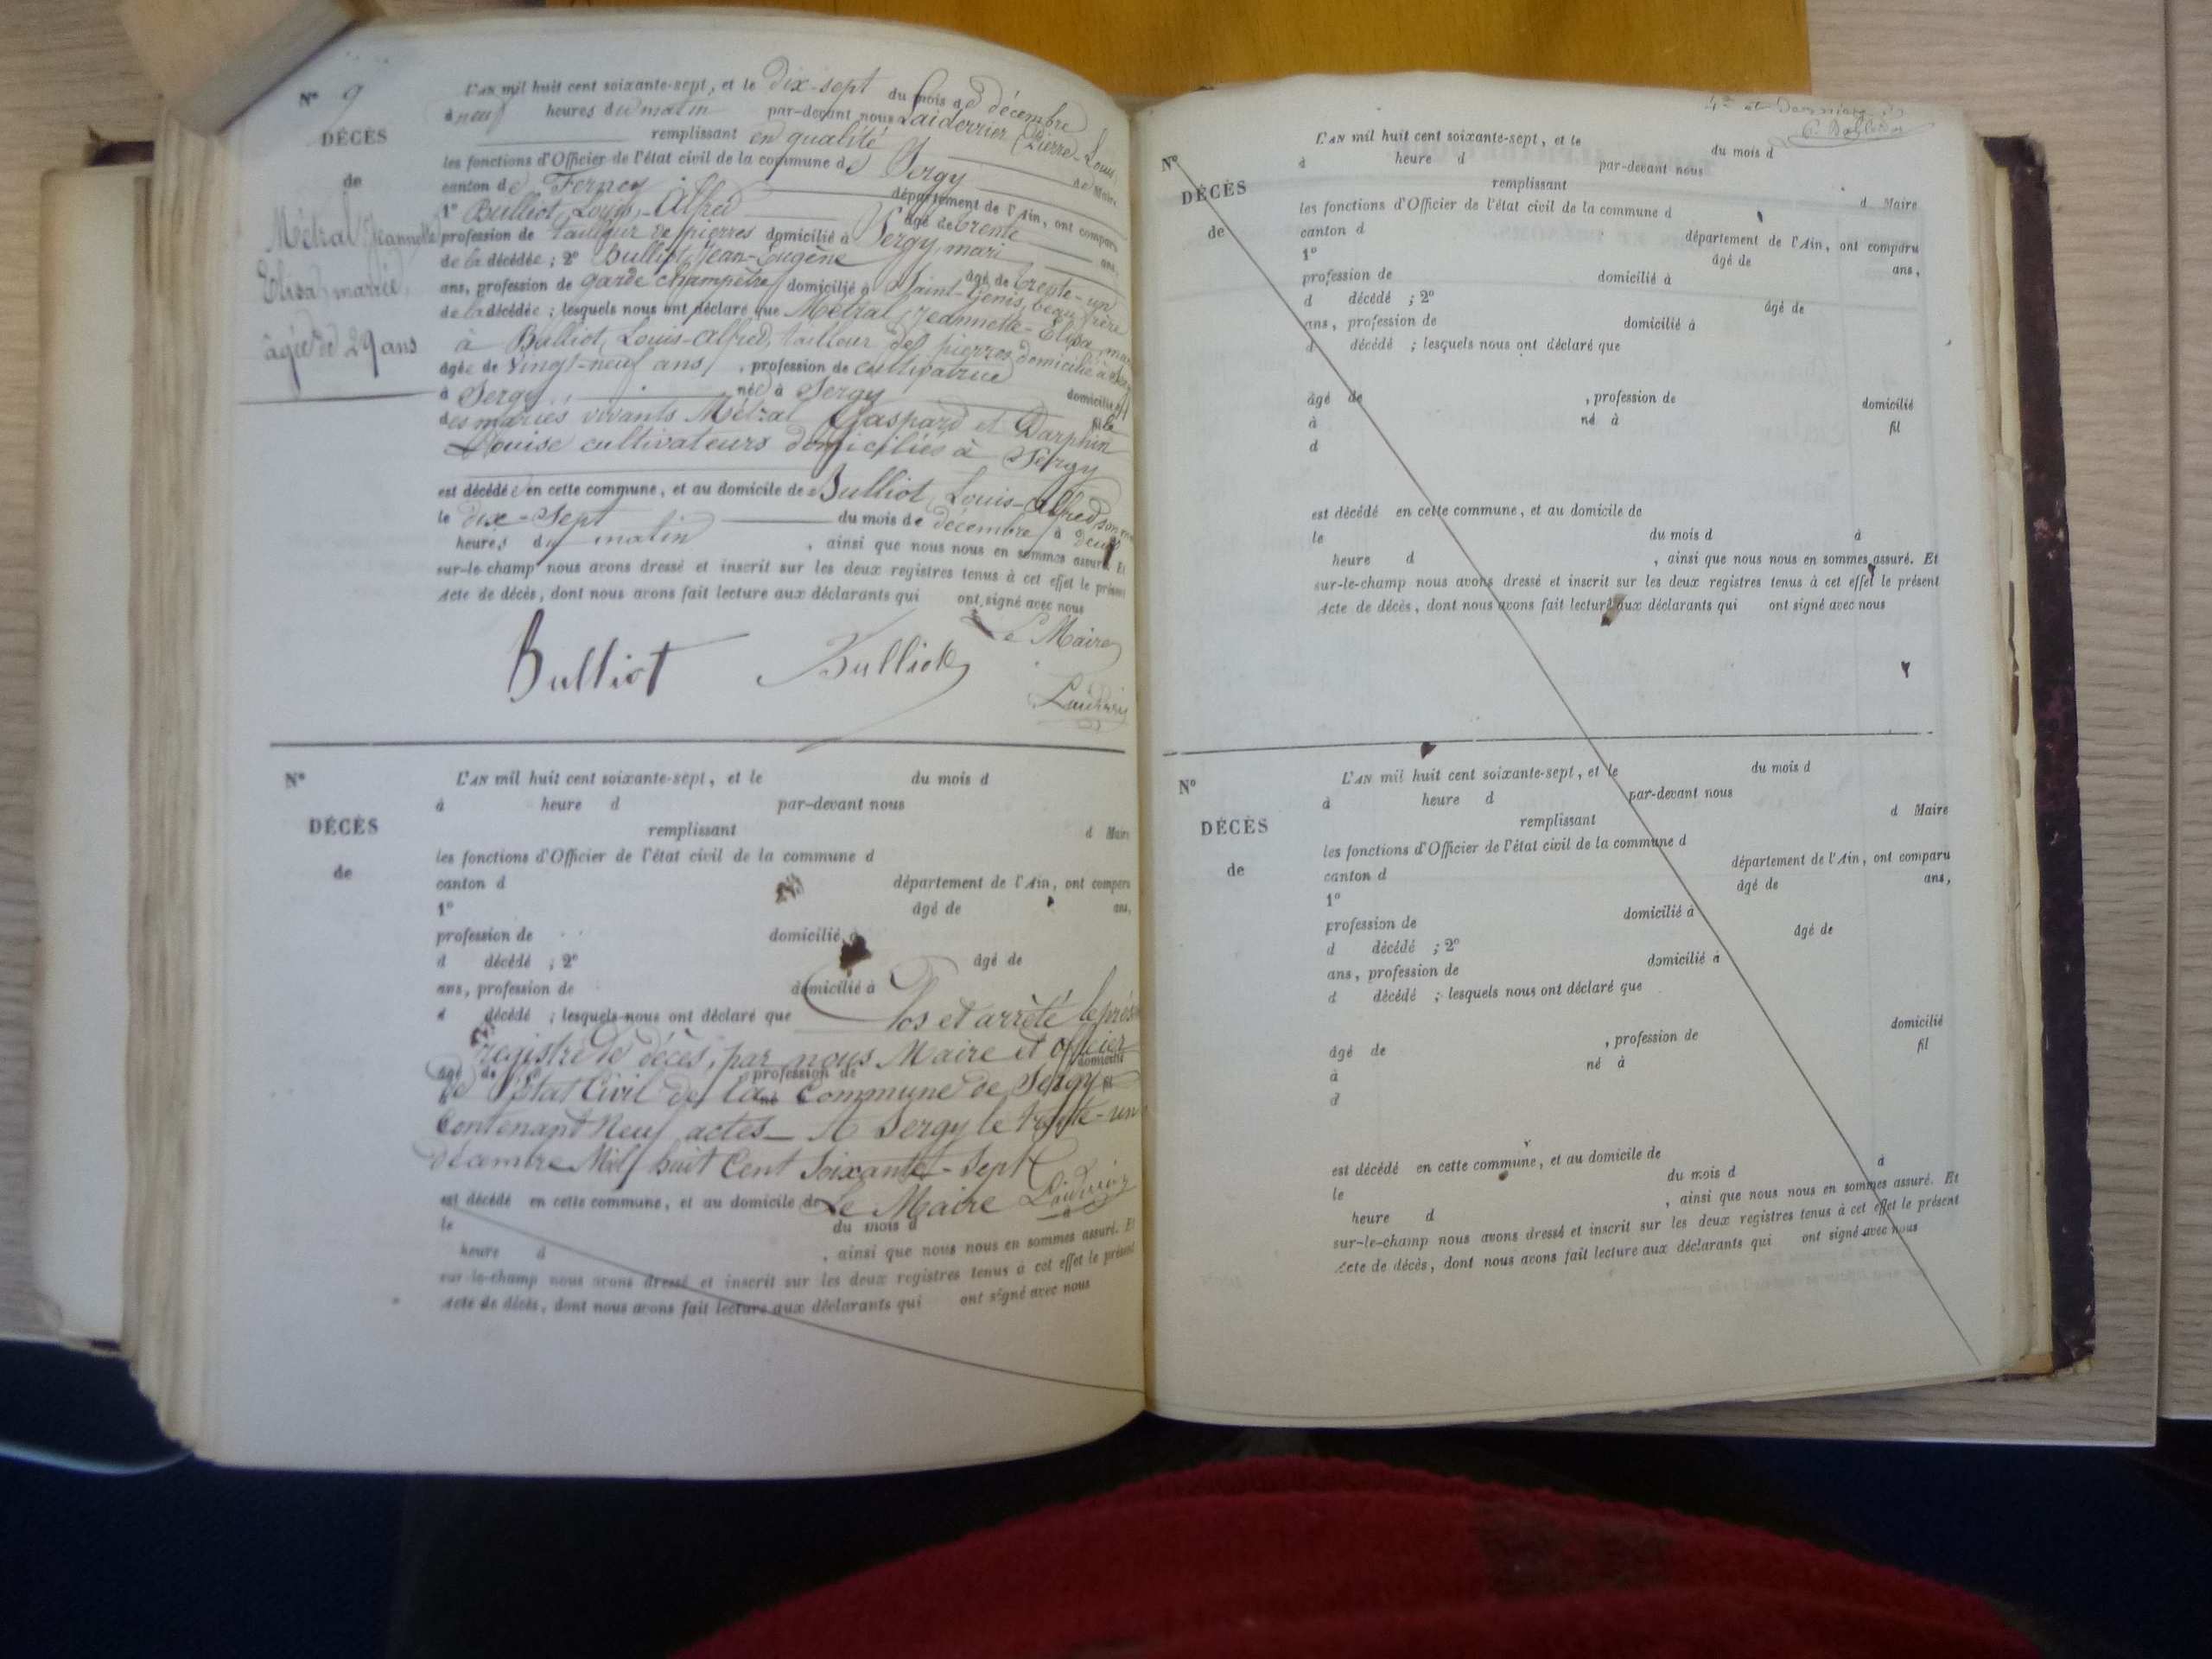 N° 9
DÉCÈS
de
Métral Jeannette
Elisa mariée,
âgée de 29 ans
L'AN mil huit cent soixante-sept, et le dix-sept du mois de décembre
à neuf heures du matin par-devant nous Laiderrier (Pierre-Louis
remplissant en qualité de Maire
les fonctions d'Officier de l'état civil de la commune de Sergy
canton de Ferney département de l'Ain, ont comparu
1° Bulliot, Louis-Alfred âgé de trente ans,
profession de tailleur de pierres domicilié à Sergy, mari
de la décédée ; 2° Bulliot, Jean-Eugène âgé de trente-un
ans, profession de garde champêtre domicilié à Saint-Genis, beau frère
de la décédée ; lesquels nous ont déclaré que Métral, Jeannette-Elisa
à Bulliot, Louis-Alfred, tailleur de pierres domicilié à
âgée de vingt-neuf ans, profession de cultivatrice domiciliée
à Sergy née à Sergy fille
des mariés vivants Métral Gaspard et Darphin
Louise cultivateurs domiciliés à Sergy
est décédée en cette commune, et au domicile de Bulliot, Louis-Alfred son
le dix-sept du mois de décembre à deux
heures du matin, ainsi que nous nous en sommes assuré. Et
sur-le-champ nous avons dressé et inscrit sur les deux registres tenus à cet effet le présent
Acte de décès, dont nous avons fait lecture aux déclarants qui ont signé avec nous
Le Maire
Bulliot Bulliot
N°
DÉCÈS
de
L'AN mil huit cent soixante-sept, et le du mois d
à heure d par-devant nous
remplissant d Maire
les fonctions d'Officier de l'état civil de la commune d
canton d département de l'Ain, ont comparu
1° âgé de ans,
profession de domicilié à
d décédé ; 2° âgé de
ans, profession de domicilié à
d décédé ; lesquels nous ont déclaré que Clos et arrêté le
registre de décès, par nous Maire et officier
âgé de profession de domicilié
de l'Etat Civil de la Commune de Sergy
Contenant Neuf actes - A Sergy le trente-un
décembre Mil huit Cent Soixante-Sept
est décédé en cette commune, et au domicile de Le Maire
le du mois d à
heure d , ainsi que nous nous en sommes assuré. Et
sur-le-champ nous avons dressé et inscrit sur les deux registres tenus à cet effet le présent
Acte de décès, dont nous avons fait lecture aux déclarants qui ont signé avec nous
N°
DÉCÈS
de
L'AN mil huit cent soixante-sept, et le du mois d
à heure d par-devant nous
remplissant d Maire
les fonctions d'Officier de l'état civil de la commune d
canton d département de l'Ain, ont comparu
1° âgé de ans,
profession de domicilié à
d décédé ; 2° âgé de
ans, profession de domicilié à
d décédé ; lesquels nous ont déclaré que
âgé de , profession de domicilié
à né à fil
d
est décédé en cette commune, et au domicile de
le du mois d à
heure d , ainsi que nous nous en sommes assuré. Et
sur-le-champ nous avons dressé et inscrit sur les deux registres tenus à cet effet le présent
Acte de décès, dont nous avons fait lecture aux déclarants qui ont signé avec nous
N°
DÉCÈS
de
L'AN mil huit cent soixante-sept, et le du mois d
à heure d par-devant nous
remplissant d Maire
les fonctions d'Officier de l'état civil de la commune d
canton d département de l'Ain, ont comparu
1° âgé de ans,
profession de domicilié à
d décédé ; 2° âgé de
ans, profession de domicilié à
d décédé ; lesquels nous ont déclaré que
âgé de , profession de domicilié
à né à fil
d
est décédé en cette commune, et au domicile de
le du mois d à
heure d , ainsi que nous nous en sommes assuré. Et
sur-le-champ nous avons dressé et inscrit sur les deux registres tenus à cet effet le présent
Acte de décès, dont nous avons fait lecture aux déclarants qui ont signé avec nous